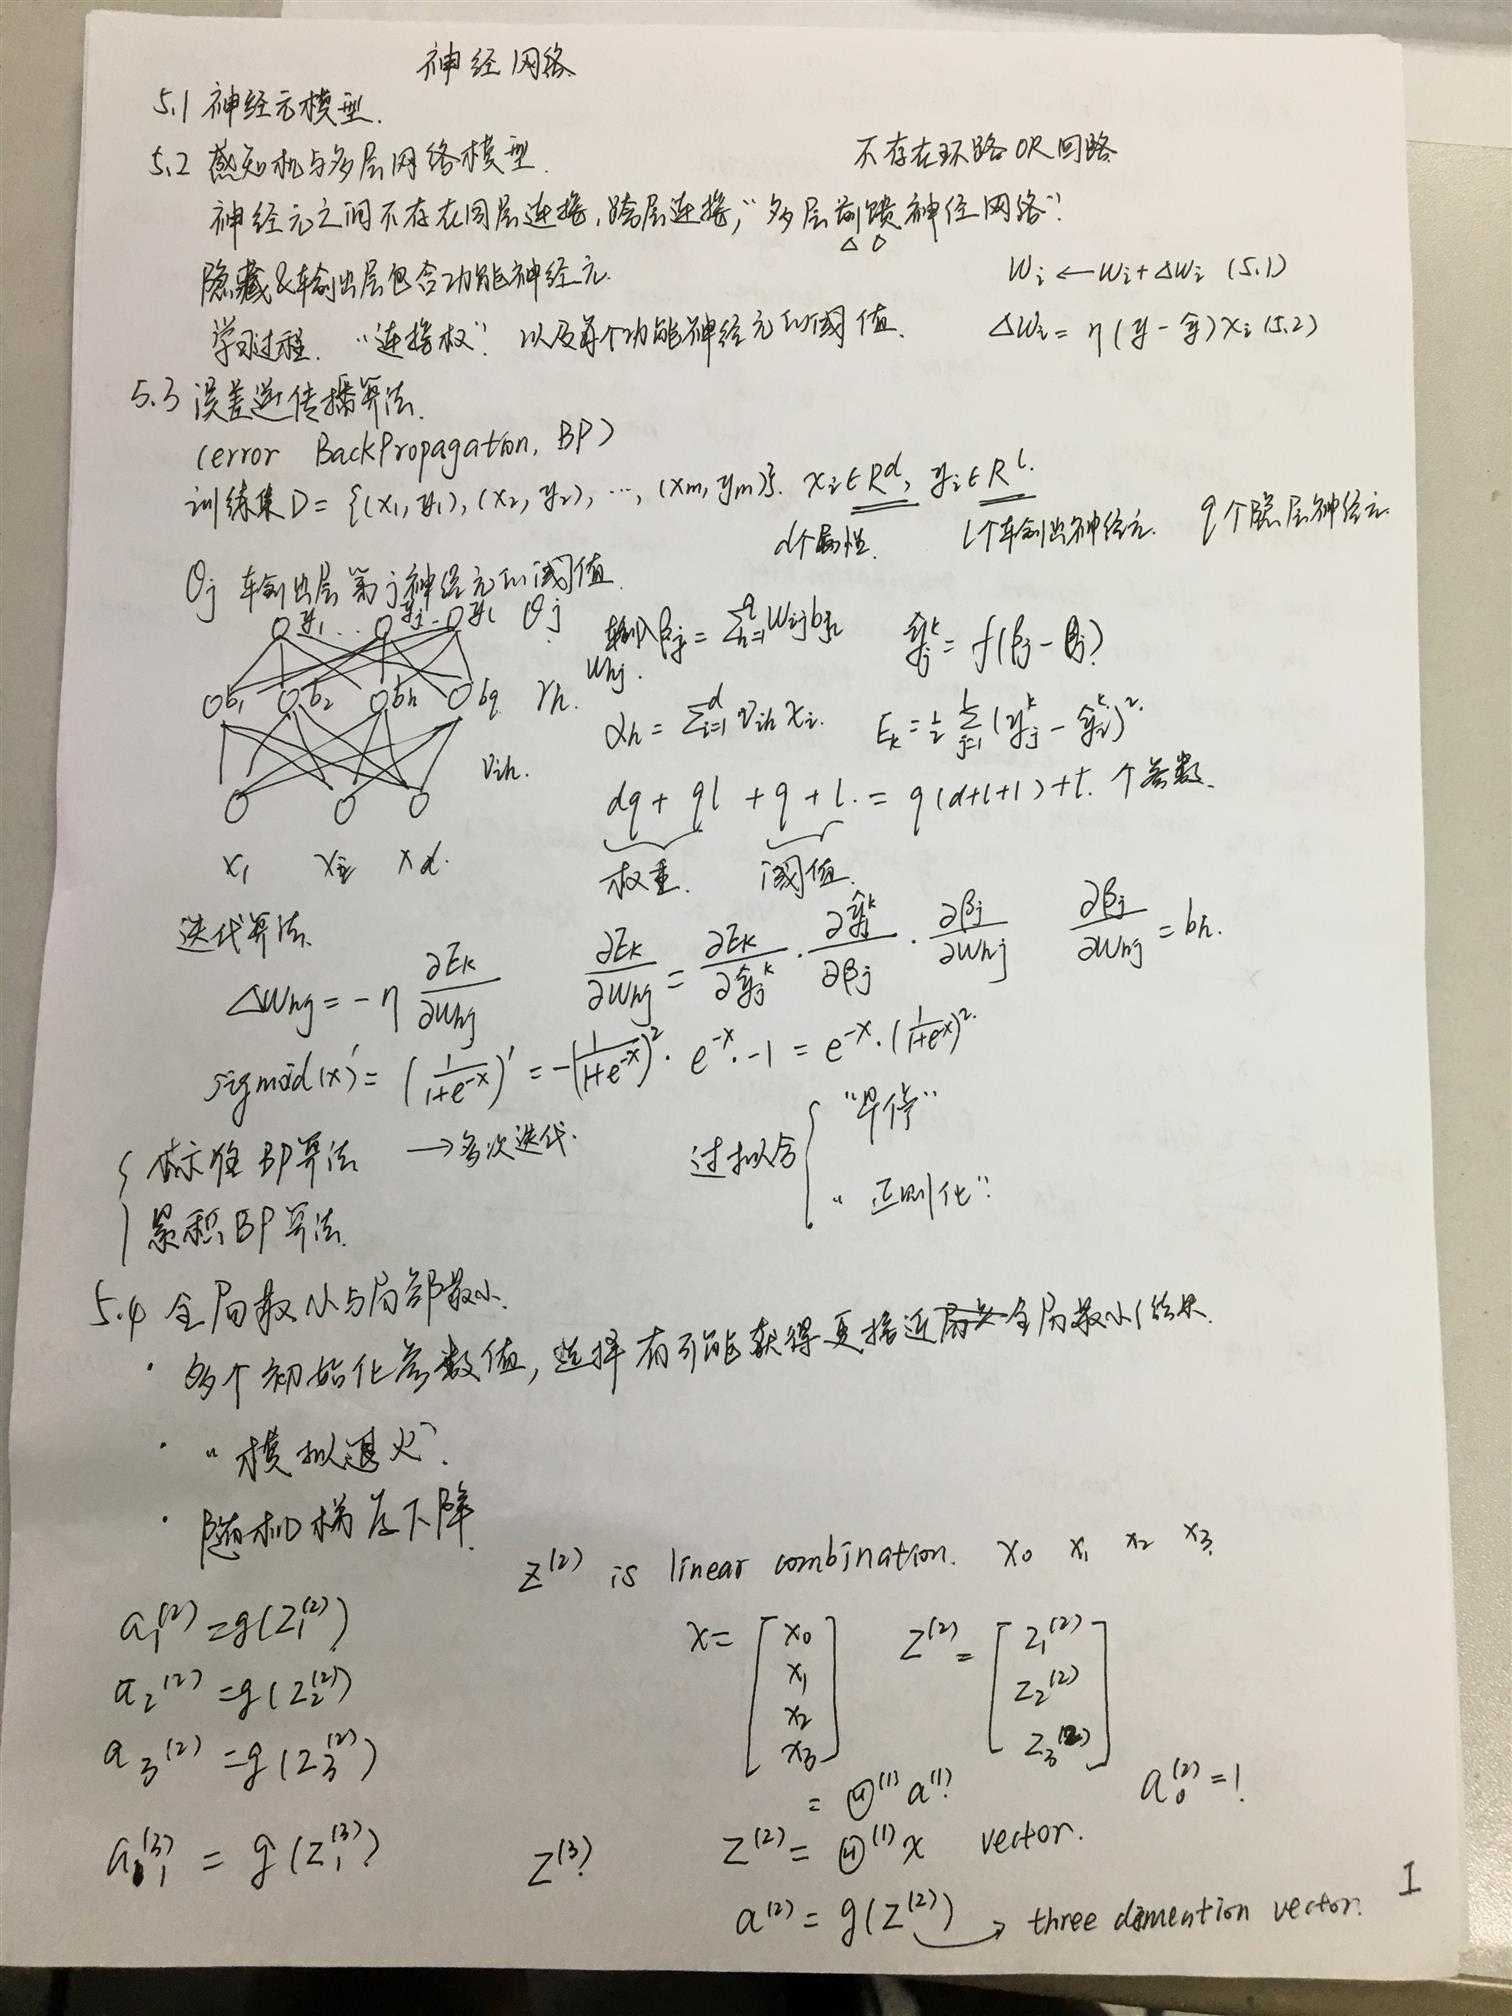 神经网络
5.1 神经元模型.
5.2 感知机与多层网络模型.
不存在环路OR回路
神经元之间不存在同层连接,跨层连接,"多层前馈神经网络".
隐藏&输出层包含功能神经元.
Wi ← Wi + ΔWi (5.1)
学习过程. "连接权". 以及每个功能神经元的阈值.
ΔWi = η(y - ŷ)xi (5.2)
5.3 误差逆传播算法.
(error BackPropagation, BP)
训练集D = {(x1, y1), (x2, y2), ..., (xm, ym)}. xi∈R^d, yi∈R^l.
d个属性. l个输出神经元. q个隐层神经元.
θj 输出层第j神经元的阈值.
y1 .. yj .. yl θj
输入βj = Σ_{h=1}^q Wij bh ŷj^k = f(βj - θj)
Whj.
b1 b2 bh bq γh.
αh = Σ_{i=1}^d Vih xi. Ek = 1/2 Σ_{j=1}^l (yj^k - ŷj^k)^2.
Vih.
dq + ql + q + l. = q(d+l+1)+l. 个参数.
x1 xi xd.
权重. 阈值.
迭代算法.
ΔWhj = -η ∂Ek/∂Whj ∂Ek/∂Whj = ∂Ek/∂ŷj^k · ∂ŷj^k/∂βj · ∂βj/∂Whj ∂βj/∂Whj = bh.
sigmoid(x)' = (1/(1+e^-x))' = -(1/(1+e^-x))^2 · e^-x · -1 = e^-x · (1/(1+e^-x))^2.
标准BP算法 → 多次迭代.
累积BP算法.
过拟合 { "早停"
"正则化".
5.4 全局最小与局部最小.
· 多个初始化参数值, 选择有可能获得更接近全局最小结果.
· "模拟退火".
· 随机梯度下降.
Z^(2) is linear combination. x0 x1 x2 x3.
a1^(2) = g(Z1^(2))
a2^(2) = g(Z2^(2))
a3^(2) = g(Z3^(2))
x = [x0 x1 x2 x3] Z^(2) = [Z1^(2) Z2^(2) Z3^(2)]
= Θ^(1) a^(1). a0^(2) = 1.
a1^(3) = g(Z1^(3)) Z^(3).
Z^(2) = Θ^(1) x vector.
a^(2) = g(Z^(2)) → three dimention vector.
1